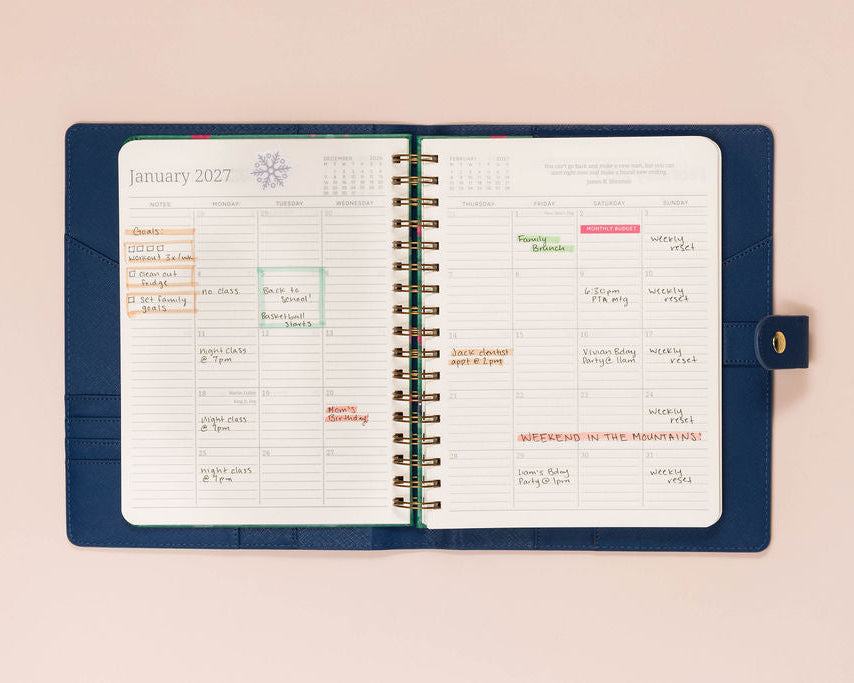 January 2027
DECEMBER 2026
M T W T F S S
NOTES
MONDAY
TUESDAY
WEDNESDAY
28
29
30
Goals:
workout 3x/wk
clean out
fridge
set family
goals
4
no class
5
Back to
School!
Basketball
starts
6
11
night class
@ 7pm
12
13
18
Martin Luther
King Jr. Day
Night class
@ 7pm
19
20
Mom's
Birthday
25
night class
@ 7pm
26
27
FEBRUARY 2027
M T W T F S S
You can't go back and make a new start, but you can
start right now and make a brand new ending.
James R. Sherman
THURSDAY
FRIDAY
SATURDAY
SUNDAY
31
1
New Year's Day
Family
Brunch
2
MONTHLY BUDGET
3
weekly
reset
7
8
9
6:30pm
PTA mtg
10
Weekly
reset
14
Jack dentist
appt @ 2pm
15
16
Vivian Bday
Party @ 11am
17
Weekly
reset
21
22
23
24
Weekly
reset
WEEKEND IN THE MOUNTAINS!
28
29
Liam's Bday
Party @ 1pm
30
31
weekly
reset